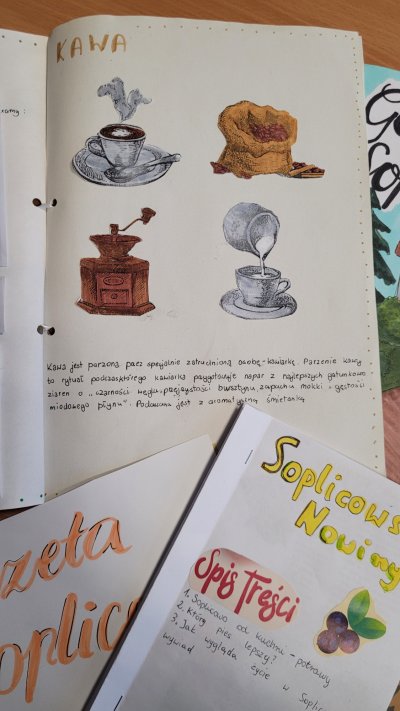 KAWA
Kawa jest parzona przez specjalnie zatrudnioną osobę - kawiarkę. Parzenie kawy
to rytuał podczas którego kawiarka przygotowuje napar z najlepszych gatunkowo
ziaren o „czarności węgla, przejrzystości bursztynu, zapachu mokki i gęstości
miodowego płynu". Podawana jest z aromatyczną śmietanką
Soplicows
Nowiny
Spis Treści
1. Soplicowo od kuchni - potrawy
2. Który pies lepszy?
3. Jak wygląda życie w Soplic
wywiad
zeta
oplic